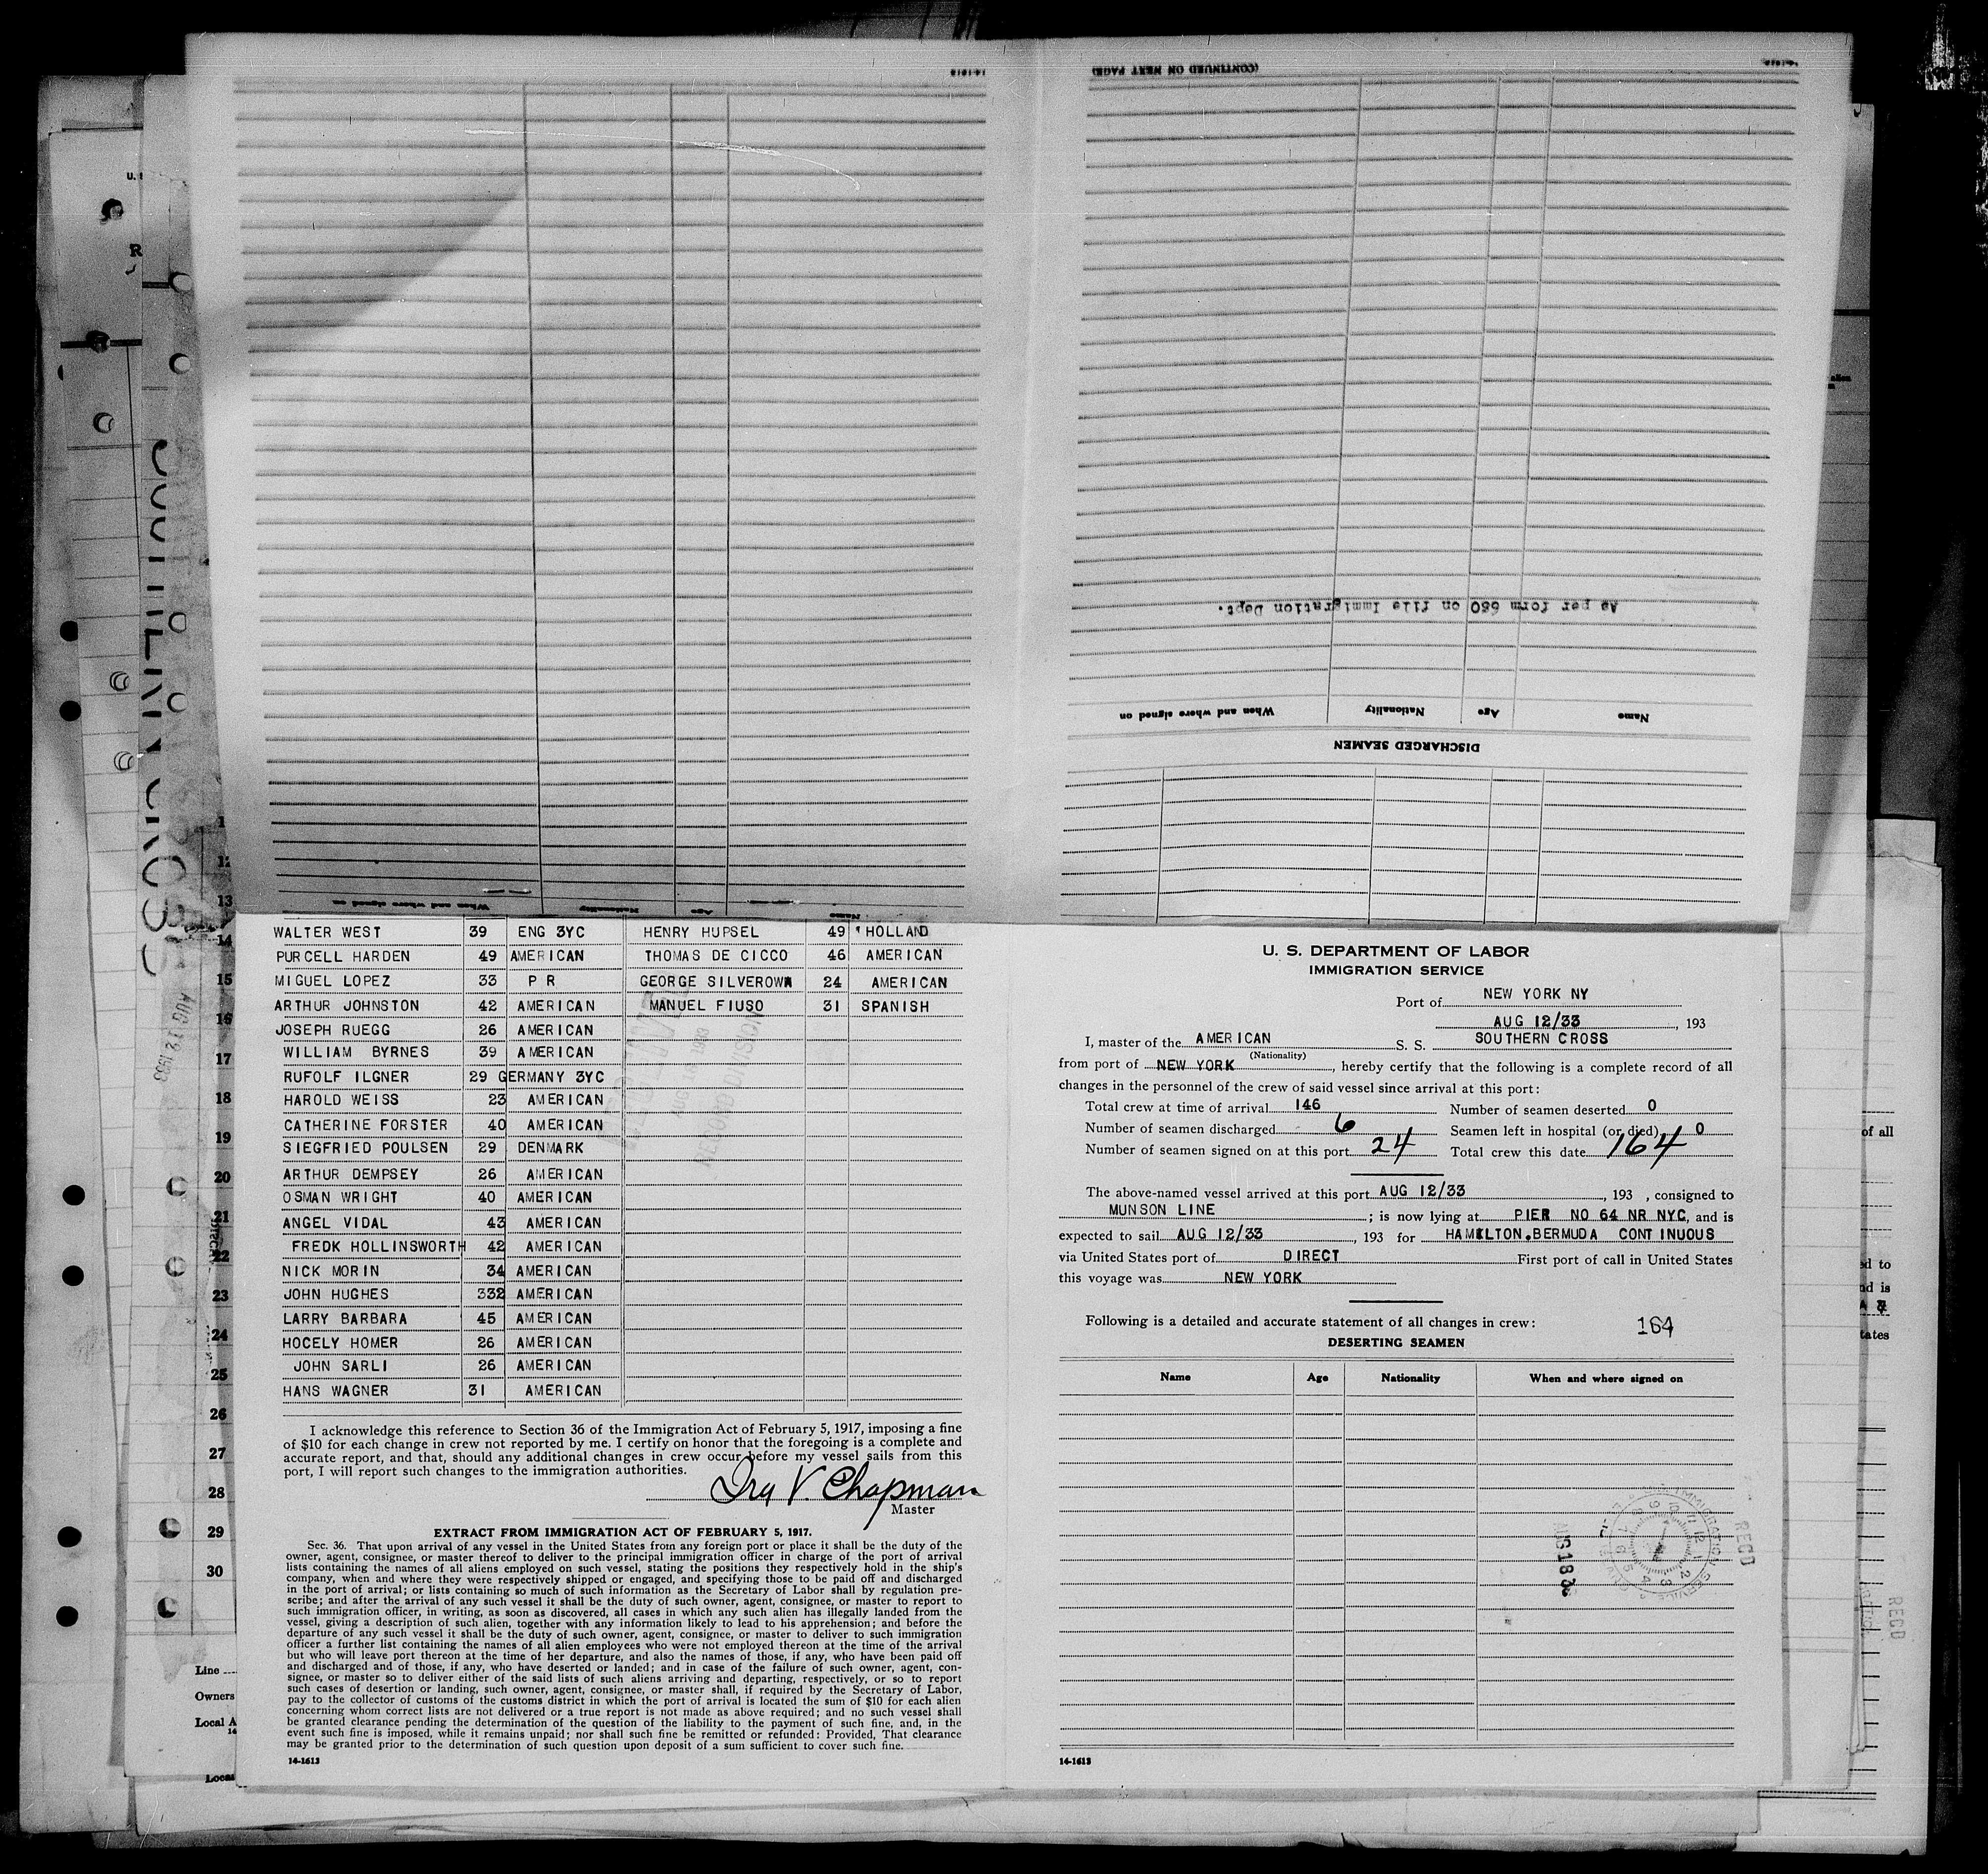 (CONTINUED ON NEXT PAGE)
As per form 680 on file Immigration Dept.
Name Age Nationality When and where signed on
DISCHARGED SEAMEN
Name Age Nationality When and where signed on
WALTER WEST 39 ENG 3YC HENRY HUPSEL 49 HOLLAND
PURCELL HARDEN 49 AMERICAN THOMAS DE CICCO 46 AMERICAN
MIGUEL LOPEZ 33 P R GEORGE SILVEROWN 24 AMERICAN
ARTHUR JOHNSTON 42 AMERICAN MANUEL FIUSO 31 SPANISH
JOSEPH RUEGG 26 AMERICAN
WILLIAM BYRNES 39 AMERICAN
RUFOLF ILGNER 29 GERMANY 3YC
HAROLD WEISS 23 AMERICAN
CATHERINE FORSTER 40 AMERICAN
SIEGFRIED POULSEN 29 DENMARK
ARTHUR DEMPSEY 26 AMERICAN
OSMAN WRIGHT 40 AMERICAN
ANGEL VIDAL 43 AMERICAN
FREDK HOLLINSWORTH 42 AMERICAN
NICK MORIN 34 AMERICAN
JOHN HUGHES 332 AMERICAN
LARRY BARBARA 45 AMERICAN
HOCELY HOMER 26 AMERICAN
JOHN SARLI 26 AMERICAN
HANS WAGNER 31 AMERICAN
I acknowledge this reference to Section 36 of the Immigration Act of February 5, 1917, imposing a fine
of $10 for each change in crew not reported by me. I certify on honor that the foregoing is a complete and
accurate report, and that, should any additional changes in crew occur before my vessel sails from this
port, I will report such changes to the immigration authorities.
Ira V. Chapman
Master
EXTRACT FROM IMMIGRATION ACT OF FEBRUARY 5, 1917.
Sec. 36. That upon arrival of any vessel in the United States from any foreign port or place it shall be the duty of the
owner, agent, consignee, or master thereof to deliver to the principal immigration officer in charge of the port of arrival
lists containing the names of all aliens employed on such vessel, stating the positions they respectively hold in the ship's
company, when and where they were respectively shipped or engaged, and specifying those to be paid off and discharged
in the port of arrival; or lists containing so much of such information as the Secretary of Labor shall by regulation pre-
scribe; and after the arrival of any such vessel it shall be the duty of such owner, agent, consignee, or master to report to
such immigration officer, in writing, as soon as discovered, all cases in which any such alien has illegally landed from the
vessel, giving a description of such alien, together with any information likely to lead to his apprehension; and before the
departure of any such vessel it shall be the duty of such owner, agent, consignee, or master to deliver to such immigration
officer a further list containing the names of all alien employees who were not employed thereon at the time of the arrival
but who will leave port thereon at the time of her departure, and also the names of those, if any, who have been paid off
and discharged and of those, if any, who have deserted or landed; and in case of the failure of such owner, agent, con-
signee, or master so to deliver either of the said lists of such aliens arriving and departing, respectively, or so to report
such cases of desertion or landing, such owner, agent, consignee, or master shall, if required by the Secretary of Labor,
pay to the collector of customs of the customs district in which the port of arrival is located the sum of $10 for each alien
concerning whom correct lists are not delivered or a true report is not made as above required; and no such vessel shall
be granted clearance pending the determination of the question of the liability to the payment of such fine, and, in the
event such fine is imposed, while it remains unpaid; nor shall such fine be remitted or refunded: Provided, That clearance
may be granted prior to the determination of such question upon deposit of a sum sufficient to cover such fine.
14-1613
U. S. DEPARTMENT OF LABOR
IMMIGRATION SERVICE
Port of NEW YORK NY
AUG 12/33, 193
I, master of the AMERICAN S. S. SOUTHERN CROSS
(Nationality)
from port of NEW YORK, hereby certify that the following is a complete record of all
changes in the personnel of the crew of said vessel since arrival at this port:
Total crew at time of arrival 146 Number of seamen deserted 0
Number of seamen discharged 6 Seamen left in hospital (or died) 0
Number of seamen signed on at this port 24 Total crew this date 164
The above-named vessel arrived at this port AUG 12/33, 193 , consigned to
MUNSON LINE; is now lying at PIER NO 64 NR NYC, and is
expected to sail AUG 12/33, 193 for HAMILTON.BERMUDA CONTINUOUS
via United States port of DIRECT First port of call in United States
this voyage was NEW YORK
Following is a detailed and accurate statement of all changes in crew: 164
DESERTING SEAMEN
Name Age Nationality When and where signed on
14-1613
RECD
AUG 12 1933
RECORD DIVISION
13
14
15
16
17
18
19
20
21
22
23
24
25
26
27
28
29
30
Line
Owners
Local A
RECD